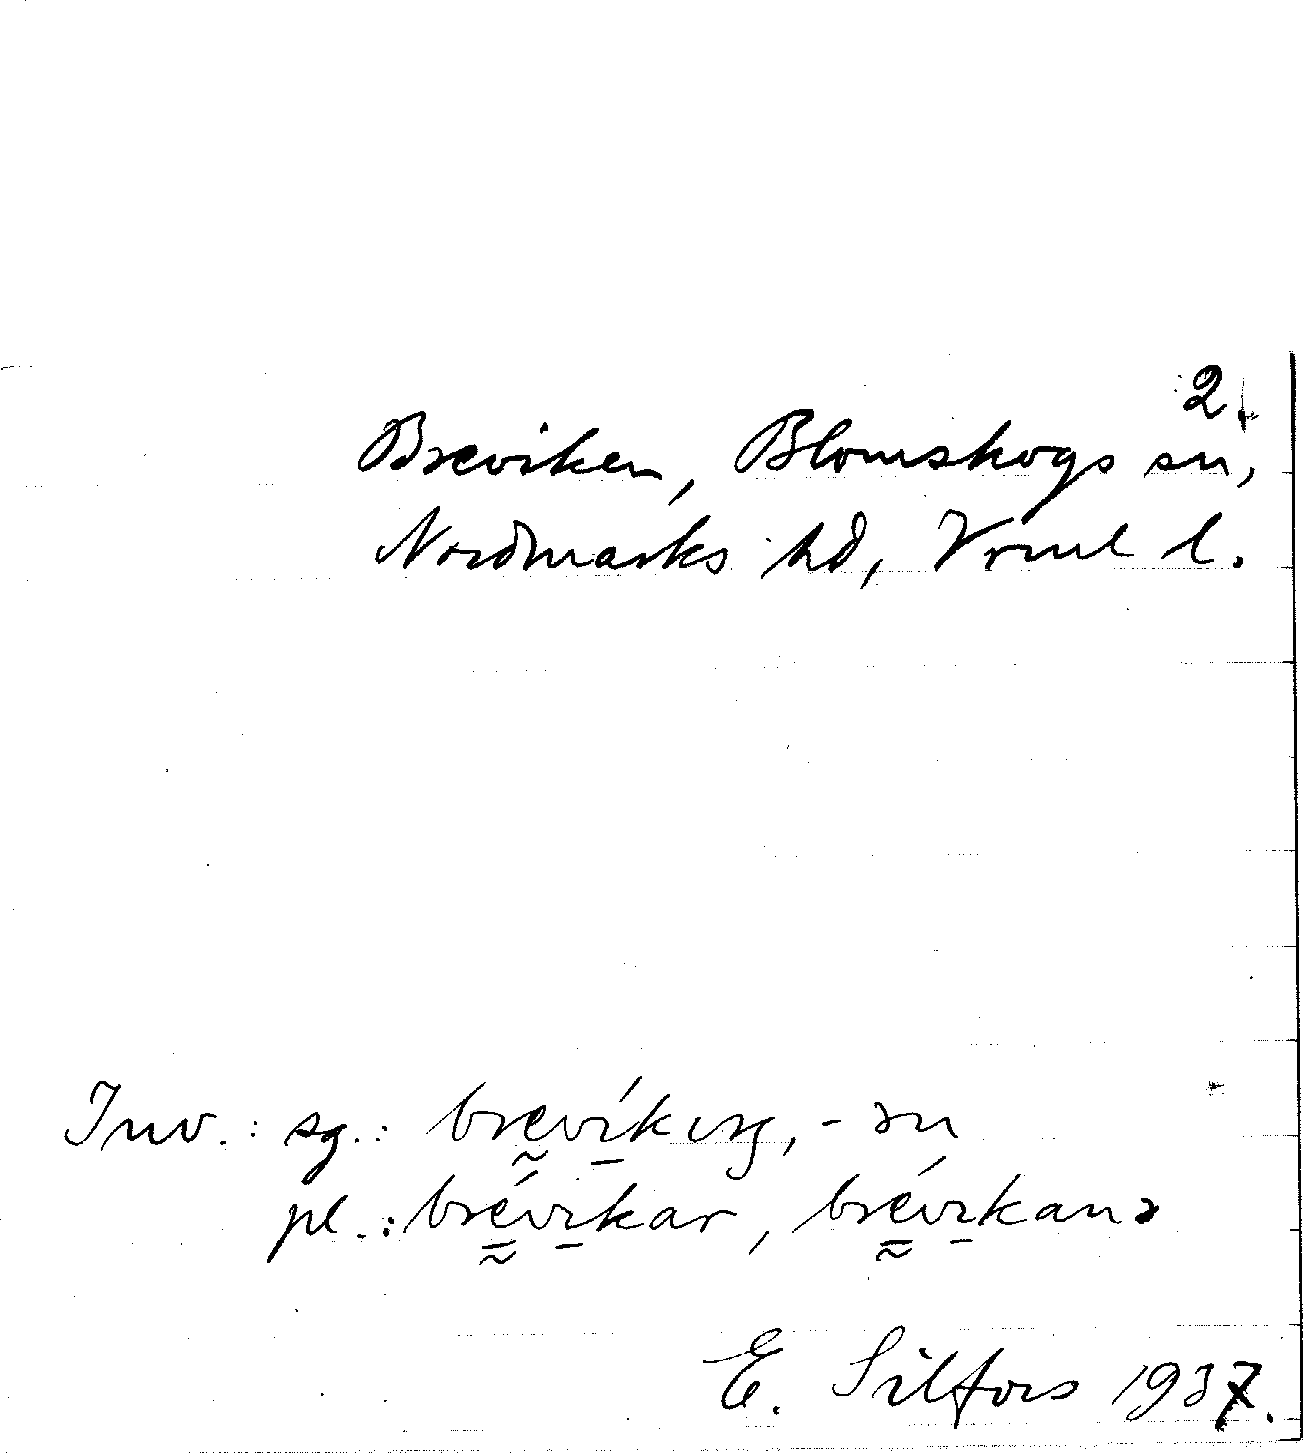 2.
Breviken, Blomskogs sn,
Nordmarks hd, Vrml l.
Inv.: sg.: brevíkıŋ, -ən
pl.: brévikar, brévikanə
E. Silfors 1937.